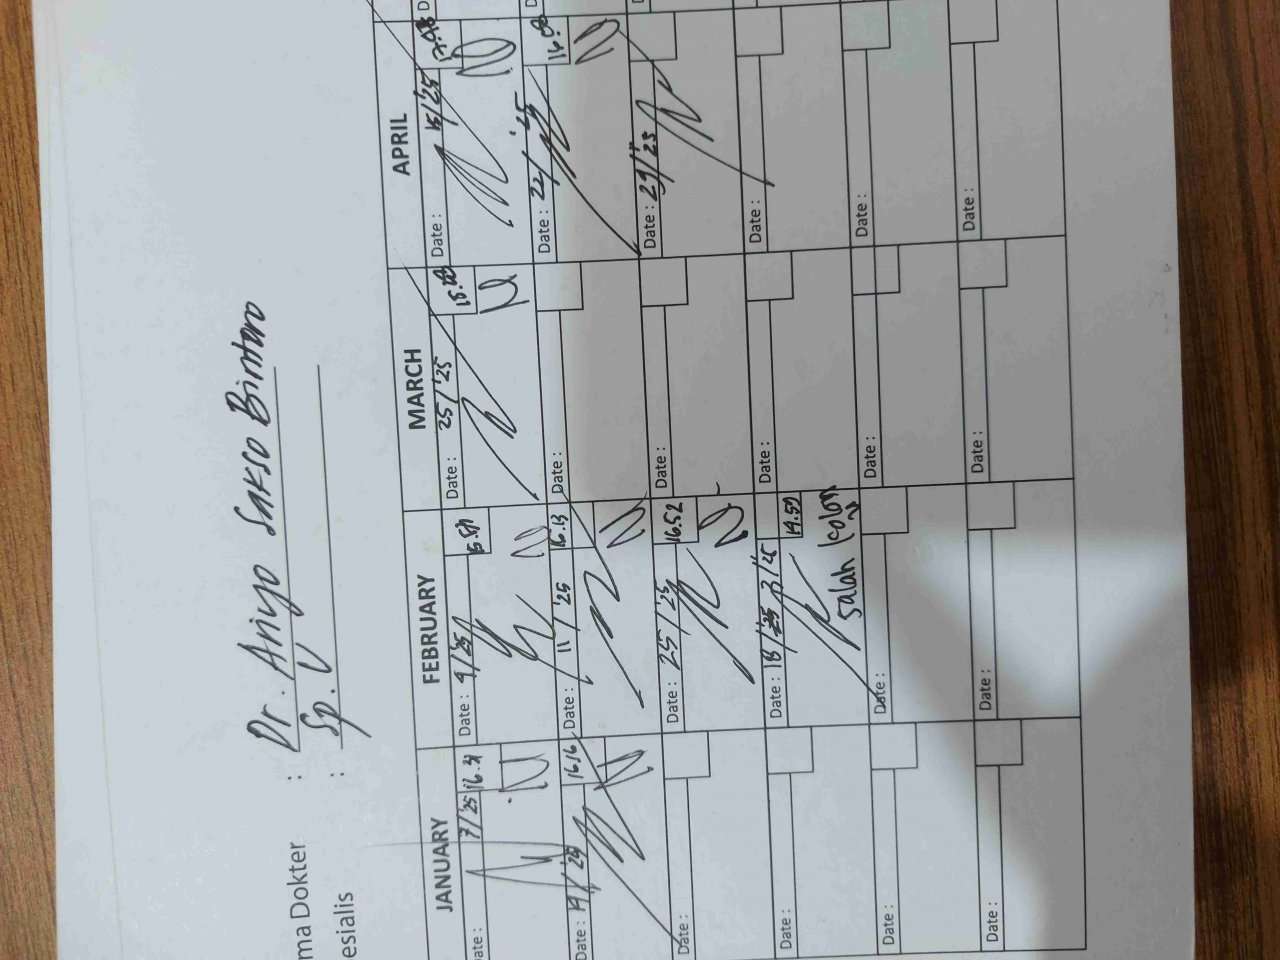 ma Dokter : Dr. Ariyo Sakso Bintoro
esialis : Sp. U
JANUARY FEBRUARY MARCH APRIL
ate : 7/25 16.31
Date : 4/25
Date : 25/'25 15.00
Date : 15/'25
Date : 14/'25 16.16
Date : 11/'25 16.13
Date :
Date : 22/'25
Date :
Date : 25/'25 16.52
Date :
Date : 29/'25
Date :
Date : 18/3/25 14.59
salah kolom
Date :
Date :
Date :
Date :
Date :
Date :
Date :
Date :
Date :
Date :